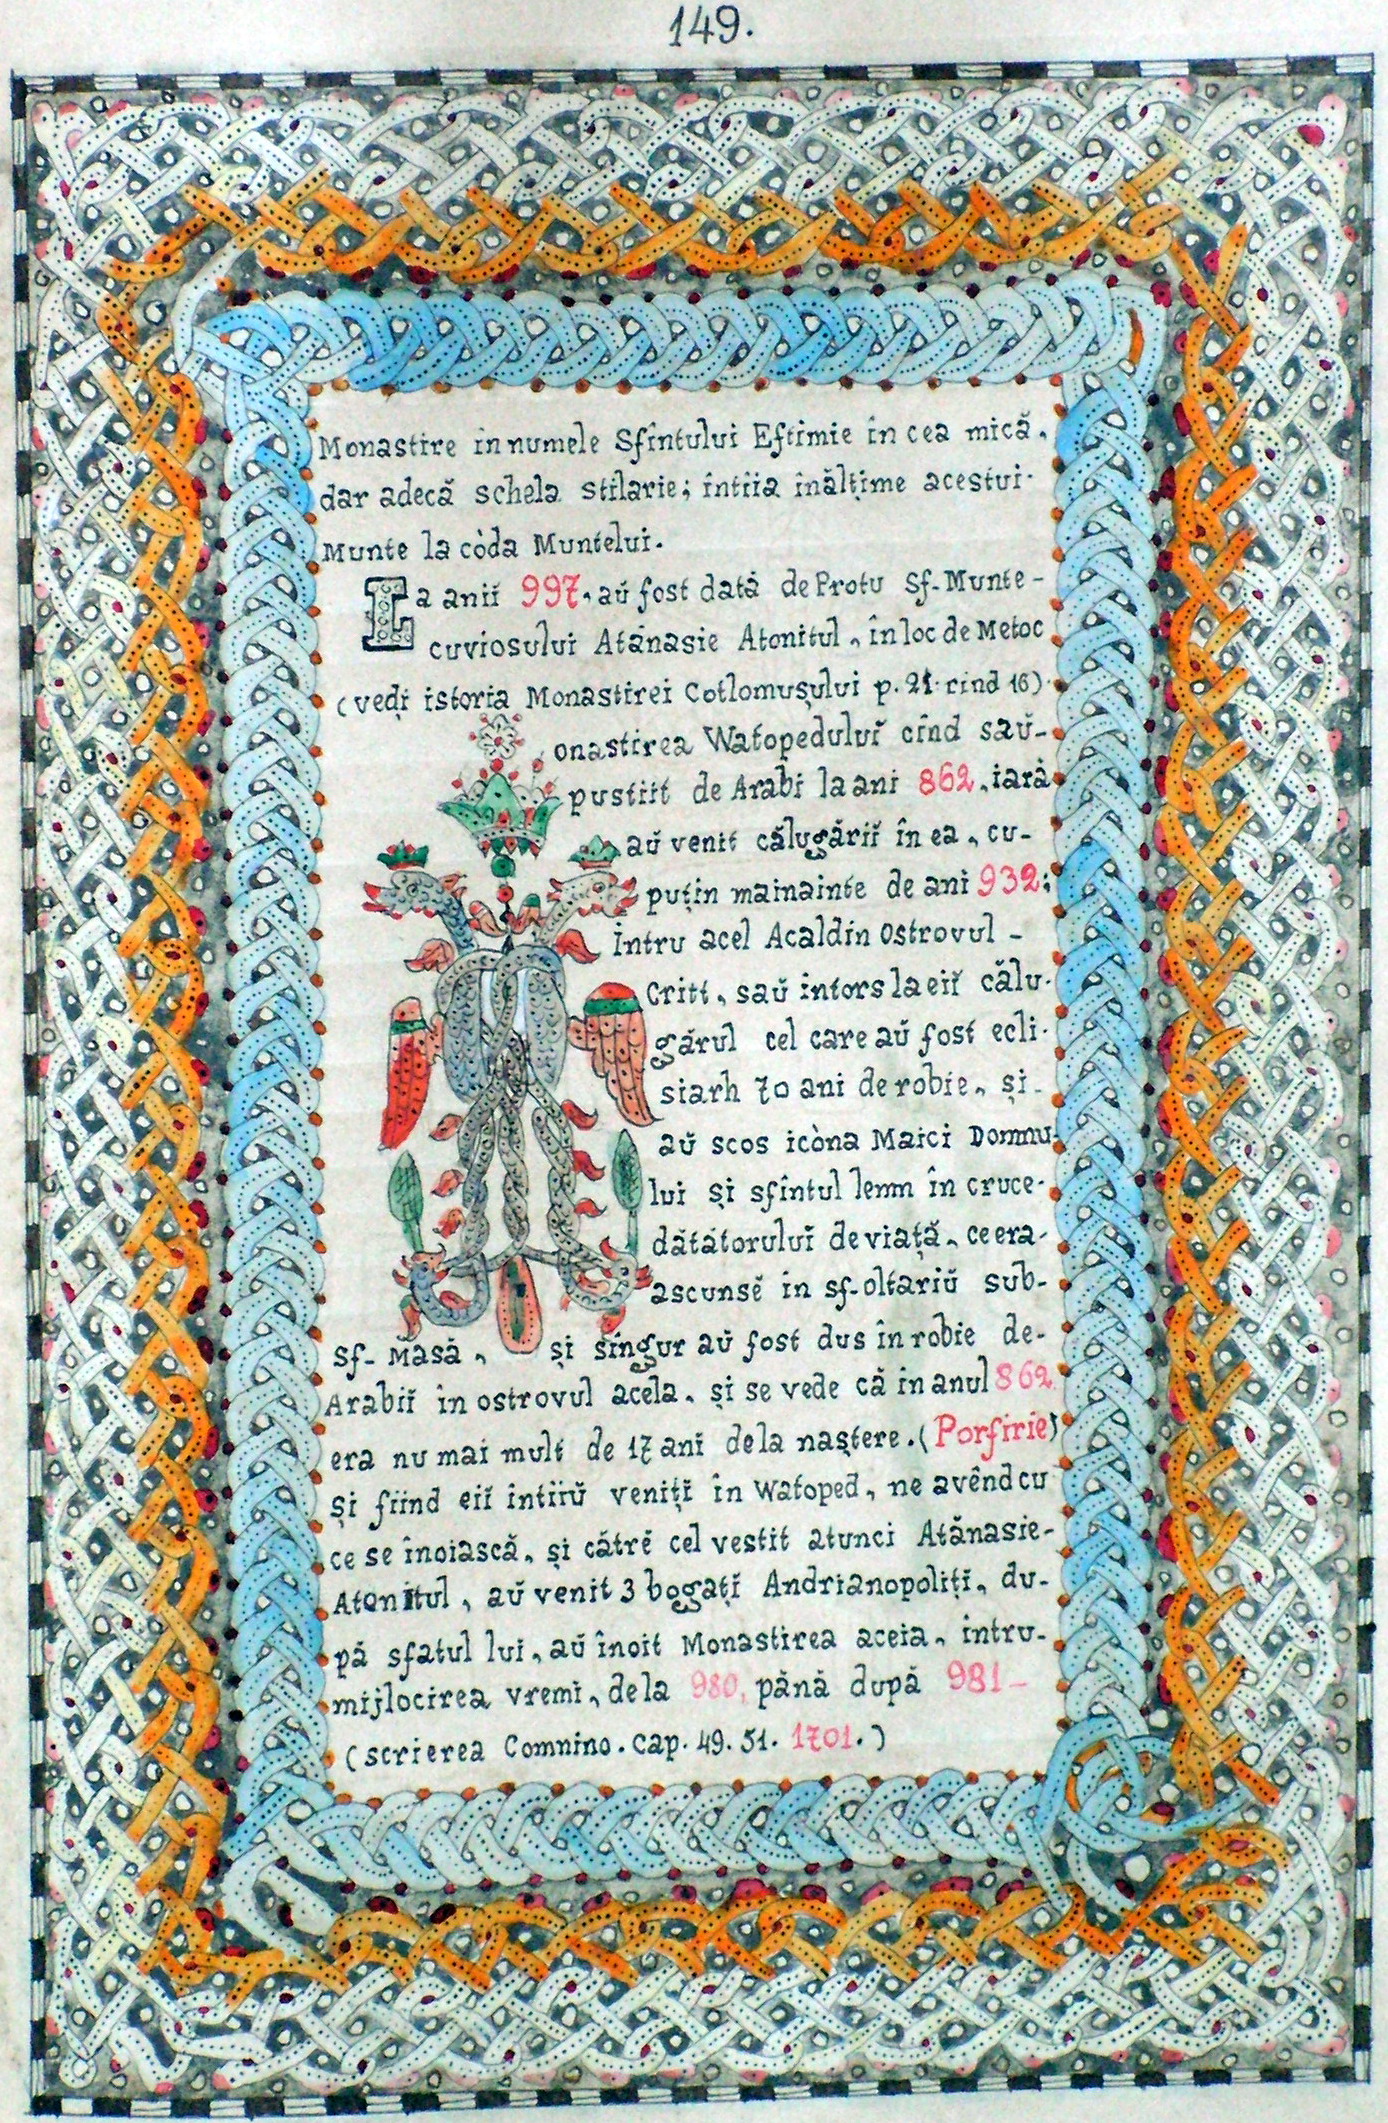 149.
Monastire in numele Sfîntului Eftimie în cea mică.
dar adecă schela stilarie; întîia înălțime acestui-
Munte la còda Muntelui.
La aniĭ 997, aŭ fost dată de Protu Sf-Munte-
cuviosului Atanasie Atonitul, în loc de Metoc
(vedi istoria Monastirei Cotlomușului p. 21. rînd 16)
onastirea Watopeduluĭ cînd saŭ-
pustiit de Arabi la ani 862, iară
aŭ venit călugăriĭ în ea, cu-
puțin mainainte de ani 932;
întru acel Acaldin Ostrovul -
Criti, saŭ intors la eiĭ călu-
gărul cel care aŭ fost ecli-
siarh 70 ani de robie, și-
aŭ scos icòna Maici Domnu-
lui și sfîntul lemn în cruce-
dătătoruluĭ de viață, ce era-
ascunsĕ in sf-oltariŭ sub-
Sf-Masă, și singur aŭ fost dus în robie de-
Arabiĭ în ostrovul acela, și se vede că in anul 862
era nu mai mult de 17 anĭ de la naștere. (Porfirie)
Și fiind eiĭ intiiŭ venițĭ în Watoped, ne avênd cu
ce se înoiască, și cătrĕ cel vestit atunci Atănasie-
Atonitul, aŭ venit 3 bogațĭ Andrianopolițĭ, du-
pă sfatul lui, aŭ înoit Monastirea aceia, intru-
mijlocirea vremi, de la 980, pănă după 981-
(scrierea Comnino. cap. 49. 51. 1701.)